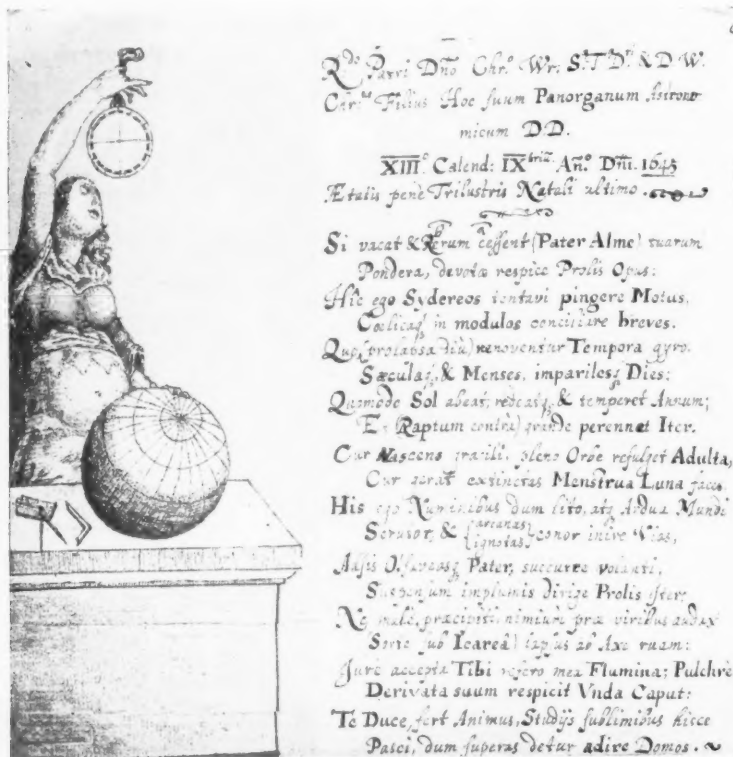 Rdo Patri Dno Chro Wr: S.T.D. & D W.
Chrus Filius Hoc suum Panorganum Astrono
micum DD.
XIIIo. Calend: IXbris. Ano. Dni. 1645
Ætatis pene Trilustris Natali ultimo.
Si vacat & Rerum cessent (Pater Alme) tuarum
Pondera, devotæ respice Prolis Opus:
Hic ego Sydereos tentavi pingere Motus,
Cœlicaq in modulos conciliare breves.
Quo (prolapsa diu) renoventur Tempora gyro.
Sæculaq, & Menses, imparilesq Dies;
Quomodo Sol abeat, redeatq, & temperet Annum;
Et (Raptum contra) grande perennet Iter.
Cur Nascens gracili, pleno Orbe refulget Adulta,
Cur gerat extinctas Menstrua Luna faces.
His ego Numinibus dum lito, atq Ardua Mundi
Scrutor, & arcanas
ignotas conor inire Vias,
Adsis O! faveasq Pater, succurre volanti,
Suspensum implumis dirige Prolis iter;
Ne male, præcipiti, nimium præ viribus audax
Sorte sub Icarea) lapsus ab Axe ruam:
Jure accepta Tibi refero mea Flumina; Pulchre
Derivata suum respicit Vnda Caput:
Te Duce, fert Animus, Studijs sublimibus hisce
Pasci, dum superas detur adire Domos.